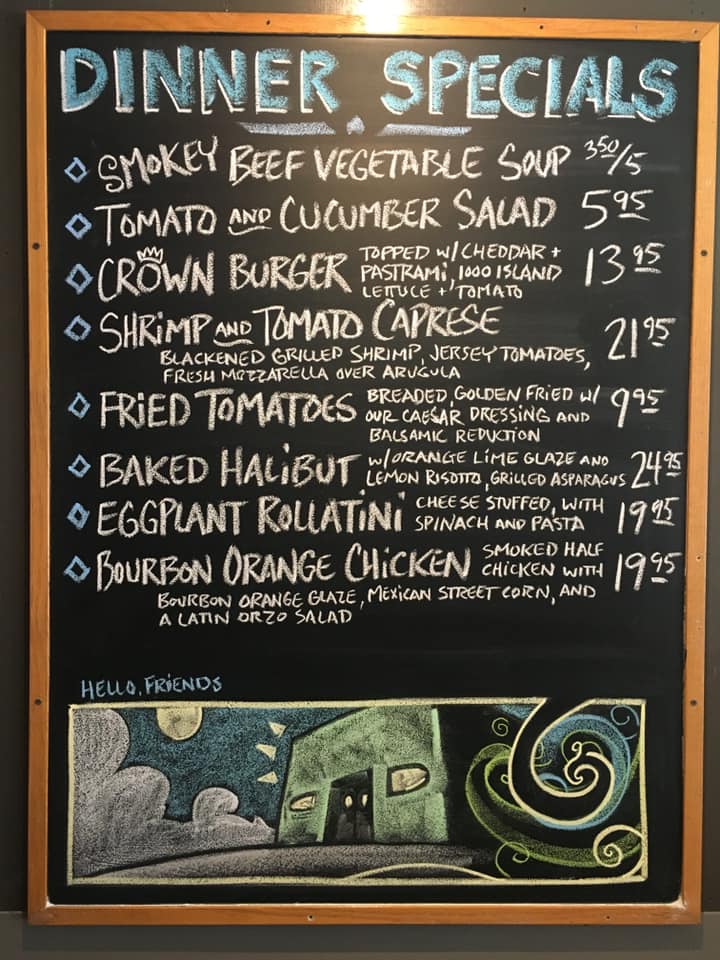 DINNER SPECIALS
SMOKEY BEEF VEGETABLE SOUP 3 50/5
TOMATO AND CUCUMBER SALAD 5 95
CROWN BURGER TOPPED W/CHEDDAR +
PASTRAMI, 1000 ISLAND
LETTUCE + TOMATO
13 95
SHRIMP AND TOMATO CAPRESE
BLACKENED GRILLED SHRIMP, JERSEY TOMATOES,
FRESH MOZZARELLA OVER ARUGULA
21 95
FRIED TOMATOES BREADED, GOLDEN FRIED W/
OUR CAESAR DRESSING AND
BALSAMIC REDUCTION
9 95
BAKED HALIBUT W/ORANGE LIME GLAZE AND
LEMON RISOTTO, GRILLED ASPARAGUS
24 95
EGGPLANT ROLLATINI CHEESE STUFFED, WITH
SPINACH AND PASTA
19 95
BOURBON ORANGE CHICKEN SMOKED HALF
CHICKEN WITH
19 95
BOURBON ORANGE GLAZE, MEXICAN STREET CORN, AND
A LATIN ORZO SALAD
HELLO, FRIENDS